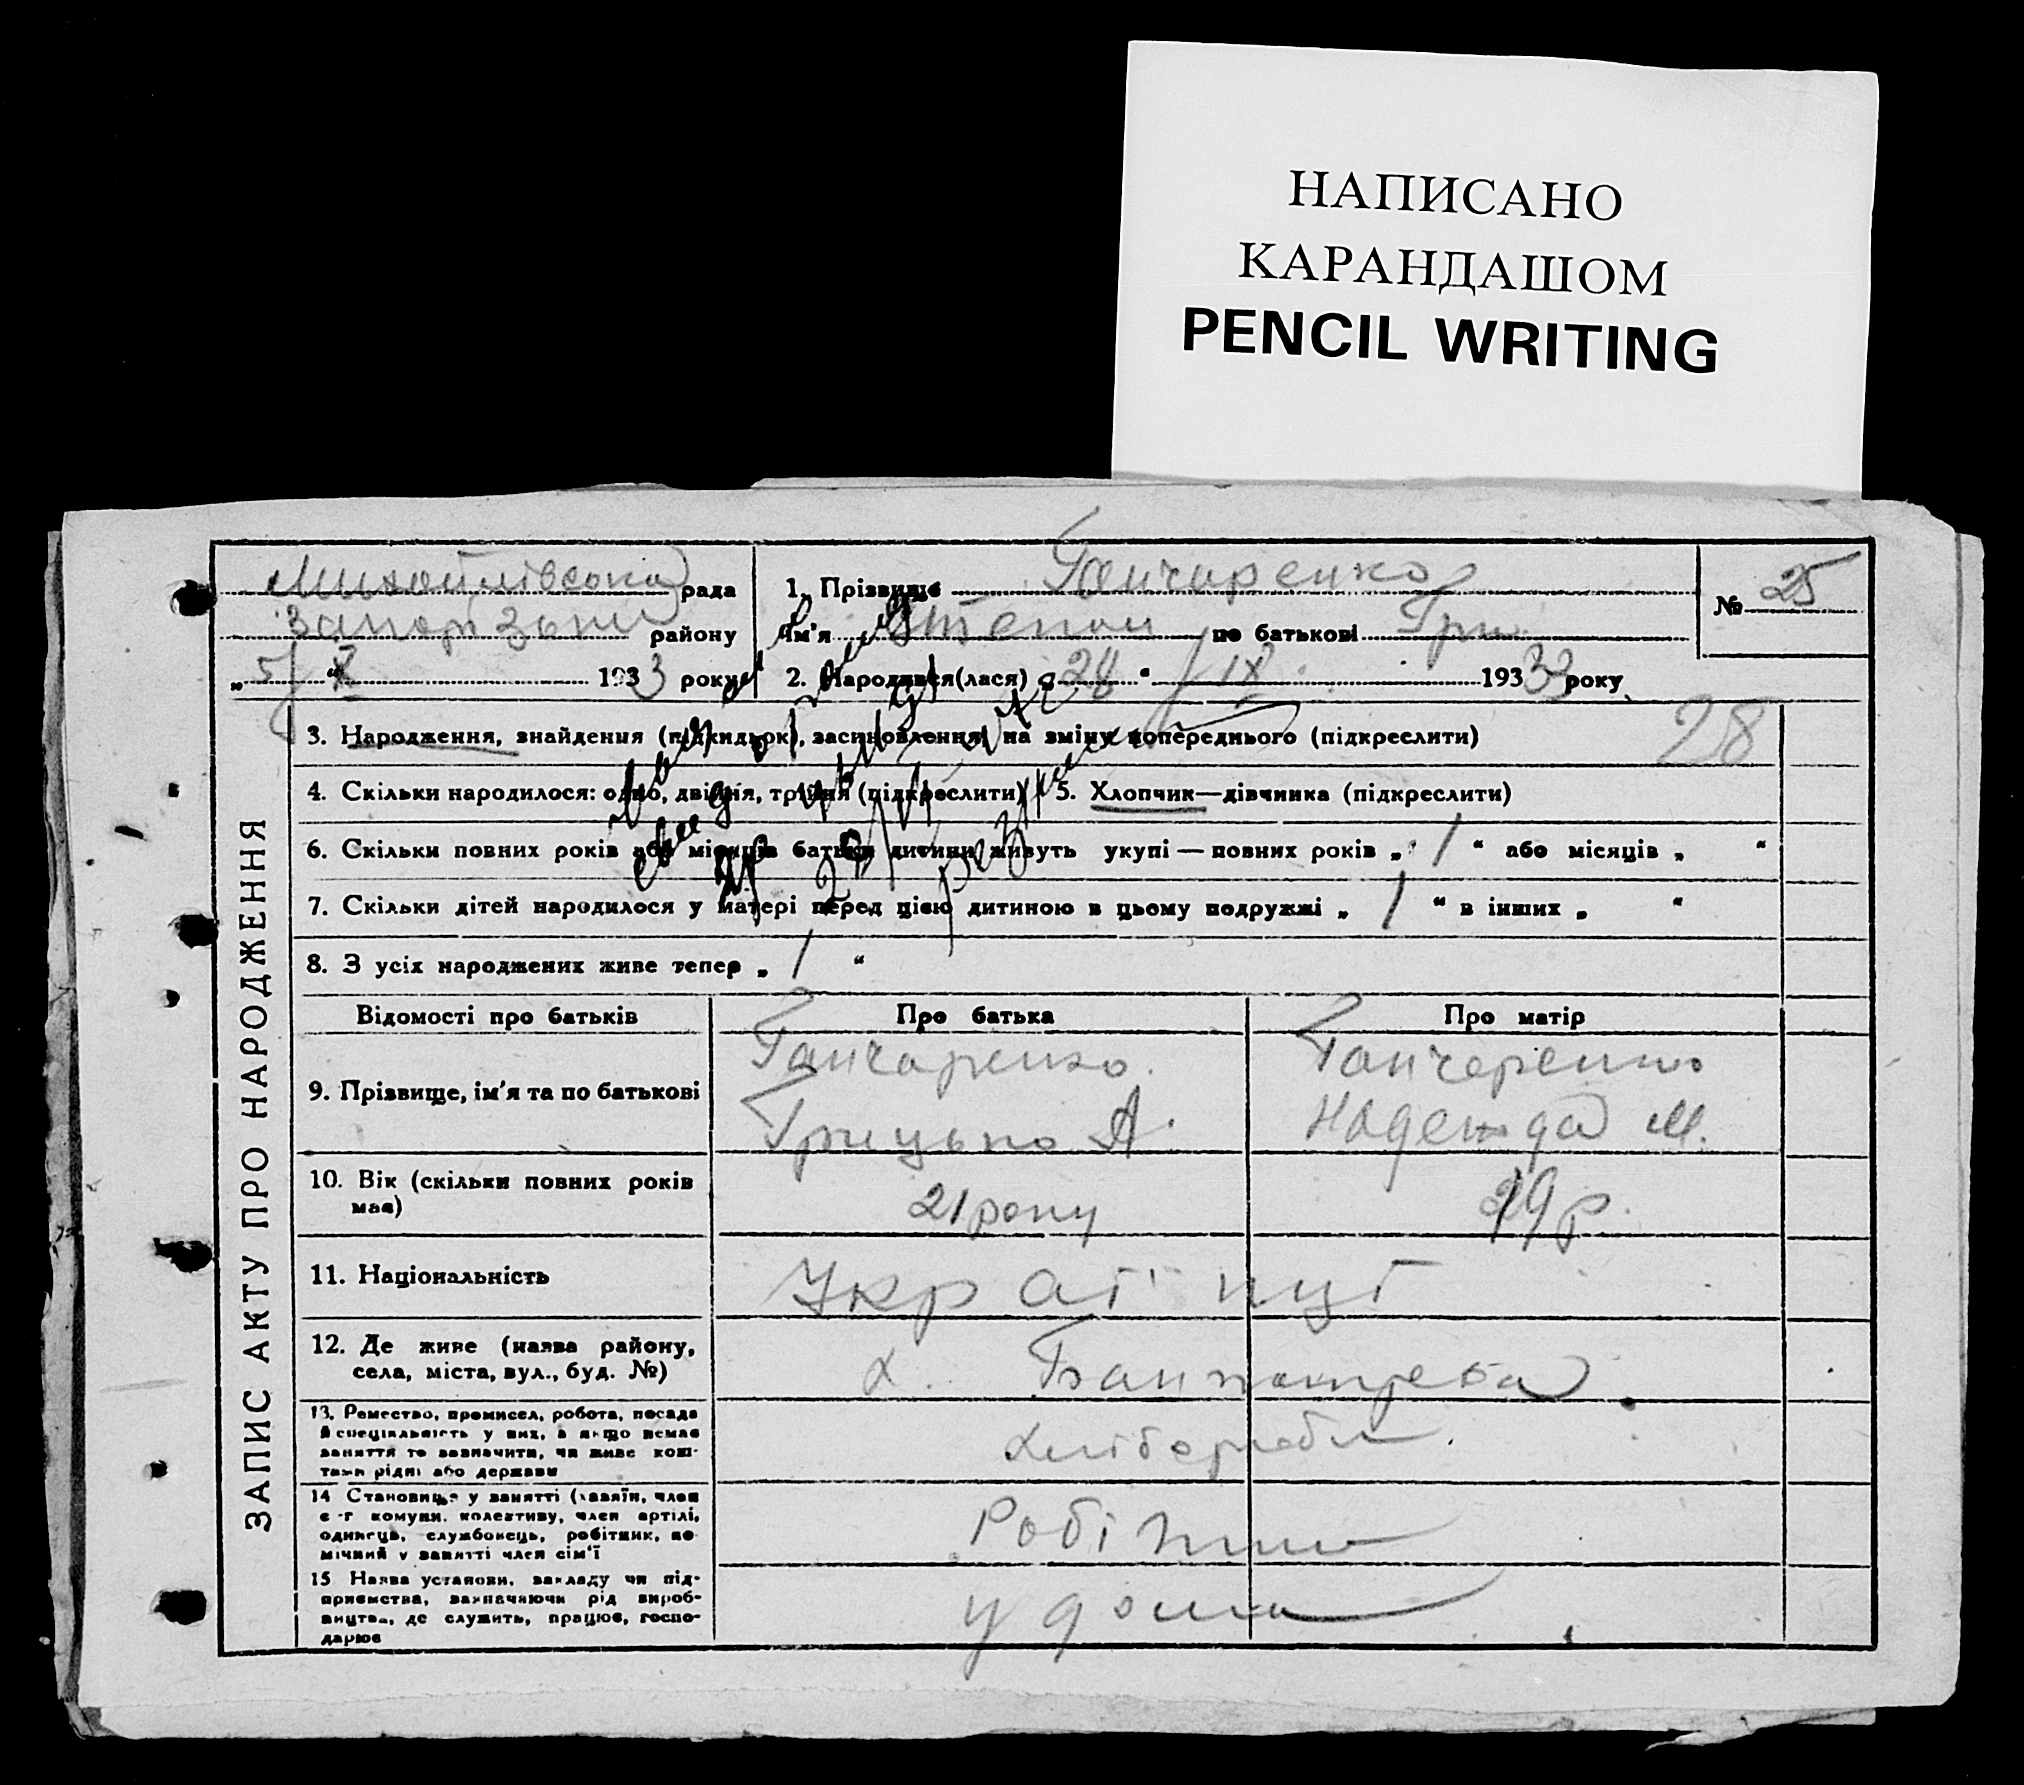 НАПИСАНО
КАРАНДАШОМ
PENCIL WRITING
Михайлівська рада
Запорізьки району
„ 5/X “ 1933 року
1. Прізвище Ганчаренко
Ім'я Степан по батькові Гри
2. Народився(лася) „ 28 “ / IX 1933 року
№ 25
ЗАПИС АКТУ ПРО НАРОДЖЕННЯ
3. Народження, знайдення (підкидьок), засиновлення, на зміну попереднього (підкреслити) 28
4. Скільки народилося: одно, двійня, трійня (підкреслити) 5. Хлопчик—дівчинка (підкреслити)
6. Скільки повних років або місяців батьки дитини живуть укупі — повних років „ 1 “ або місяців „ “
7. Скільки дітей народилося у матері перед цією дитиною в цьому подружжі „ 1 “ в інших „ “
8. З усіх народжених живе тепер „ 1 “
Відомості про батьків Про батька Про матір
9. Прізвище, ім'я та по батькові
Ганчаренко Грицько А.
Ганчеренко Надежда М.
10. Вік (скільки повних років має)
21 року
19 р.
11. Національність
Українці
12. Де живе (назва району, села, міста, вул., буд. №)
х.
13. Ремество, промисел, робота, посада й спеціяльність у них, а якщо немає заняття то зазначити, чи живе коштами рідні або держави
хлібороби
14 Становище у занятті (хазяїн, член с-г комуни, колективу, член артілі, одинець, службовець, робітник, помічний у занятті член сім'ї
Робітник
15 Назва установи, закладу чи підприємства, зазначаючи рід виробництва, де служить, працює, господарює
у дома